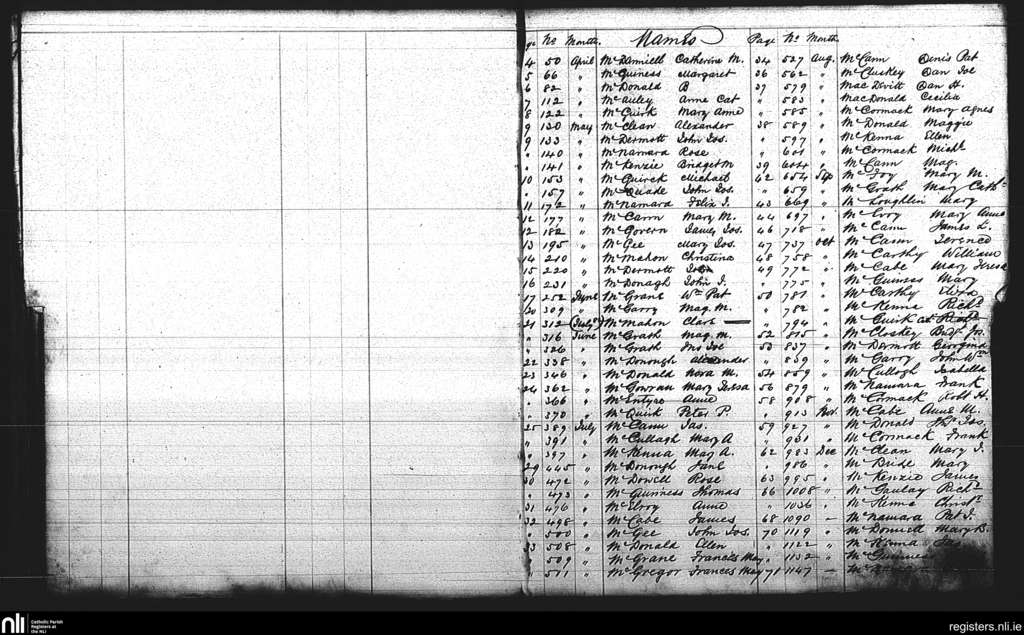 No Month. Names Page No Month
4 50 April McDaniell Catherine M. 34 527 Aug. McCann Denis Pat
5 66 " McGuiness Margaret 36 562 " McCluckey Dan Joe
6 82 " McDonald B 37 579 " MacDevitt Dan H.
7 112 " McAuley Anne Cat " 583 " MacDonald Cecilia
8 122 " McGuirk Mary Anne " 585 " McCormack Mary Agnes
9 130 May McClean Alexander 38 589 " McDonald Maggie
9 133 " McDermott John Jos. " 597 " McKenna Ellen
" 140 " McNamara Rose " 601 " McCormack Michl
" 141 " McKenzie Bridget M 39 604 " McCann Mag.
10 153 " McQuirck Michael 42 654 Sep McJoy Mary M.
" 157 " McQuade John Jos. " 659 " McGrath Mary Cath
11 172 " McNamara Felix J. 43 669 " McLoughlin Mary
12 177 " McCann Mary M. 44 697 " McEvoy Mary Anne
12 182 " McGovern James Jos. 46 718 " McCann James L.
13 195 " McGee Mary Jos. 47 737 Oct McCann Terence
14 210 " McMahon Christina 48 758 " McCarthy William
15 220 " McDermott John 49 772 " McCabe Mary Teresa
16 231 " McDonagh John J. " 775 " McGuiness Mary
17 252 June McGrane Wm Pat 50 781 " McCarthy Eliza
20 309 " McGarry Mag. M. " 782 " McKenna Richd
21 312 McMahon Clare — " 794 " McGuirk
" 316 June McGrath Mag. M. 52 815 " McCloskey Jos.
" 326 " McGrath Jno Joe 53 837 " McDermott Georgina
22 338 " McDonough Alexander " 839 " McGarry John Wm
23 346 " McDonald Nora M. 54 859 " McCullogh Isabella
24 362 " McGowran Mary Teresa 56 879 " McNamara Frank
" 366 " McEntyre Anne 58 908 " McCormack Robt H.
" 370 " McQuirk Peter P. " 913 Nov. McCabe Anne M.
25 389 July McCann Jas. 59 927 " McDonald Jos.
" 391 " McCullagh Mary A " 931 " McCormack Frank
" 397 " McKenna Mary A. 62 983 Dec McClean Mary J.
29 445 " McDonough Jane " 986 " McBride Mary
30 472 " McDowell Rose 63 995 " McKenzie James
" 473 " McGuinness Thomas 66 1008 " McGaulay Richd
31 476 " McElroy Anne " 1036 " McKenna
32 498 " McCabe James 68 1090 — McNamara Pat J.
" 500 " McGee John Jos. 70 1119 " McDonnell Mary B.
33 508 " McDonald Ellen " 1122 " McKenna
" 509 " McGrane Frances May " 1132 " McGuinness
" 511 " McGregor Frances May 71 1147 —
nli Catholic Parish
Registers at
the NLI
registers.nli.ie